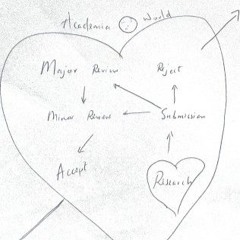 Academia World
Major Review Reject
Minor Review Submission
Accept Research